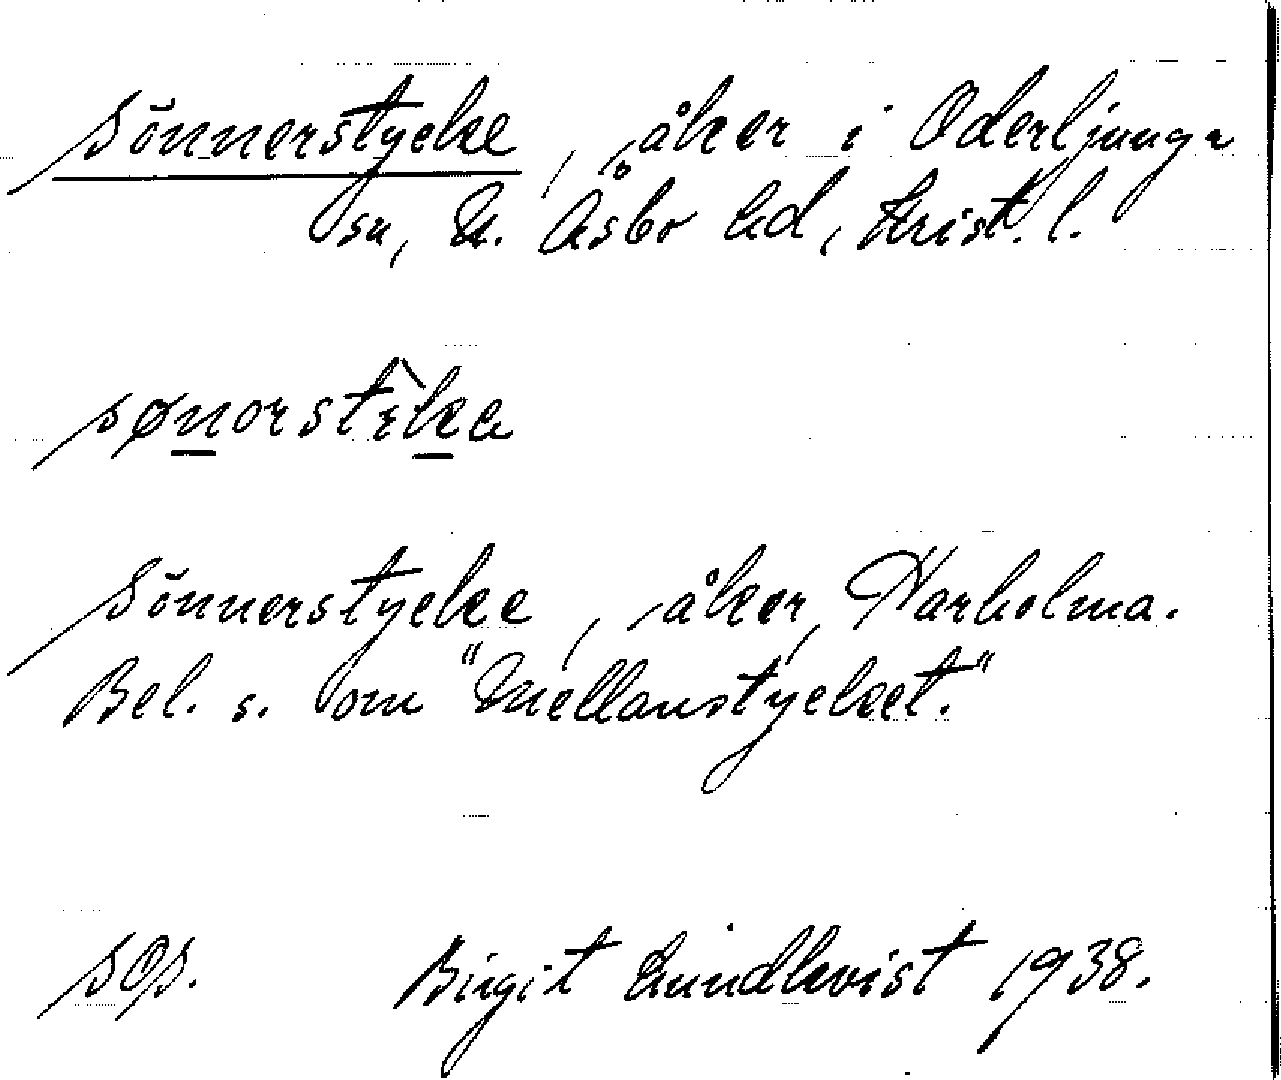 Sönnerstycke, åker i Oderljunga
sn, N. Åsbo hd, Krist. l.
sønorstika
Sönnerstycke, åker, Harholma.
Bel. s. om "Mellanstycket."
sgs. Birgit Lundkvist 1938.